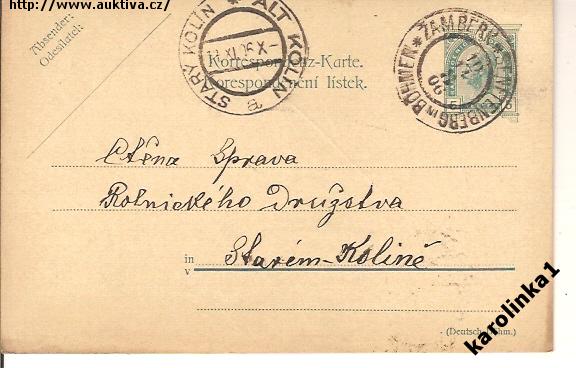 http://www.auktiva.cz/
Absender:
Odesílatel:
STARÝ KOLÍN * ALT KOLIN
XI. 06 X-
Korrespondenz-Karte.
Korespondenční lístek.
* ŽAMBERK * SENFTENBERG in BÖHMEN
5
Ctěna Sprava
Rolnického Družstva
in
v
Starém-Kolině
(Deutsch-Böhm.)
karolinka1